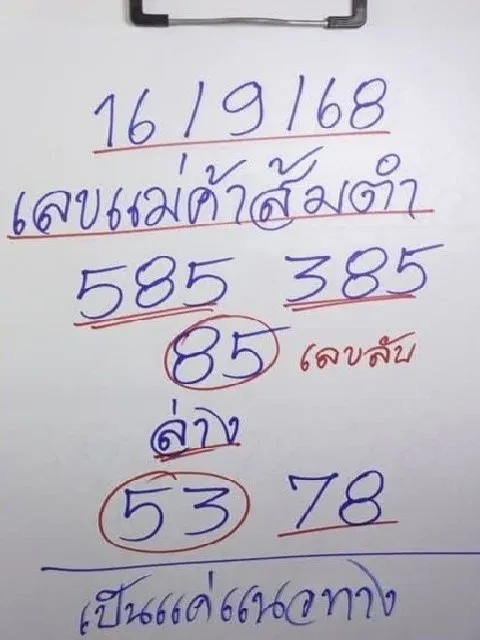 16/9/68
เลขแม่ค้าส้มตำ
585 385
85 เลขลับ
ล่าง
53 78
เป็นแค่แนวทาง